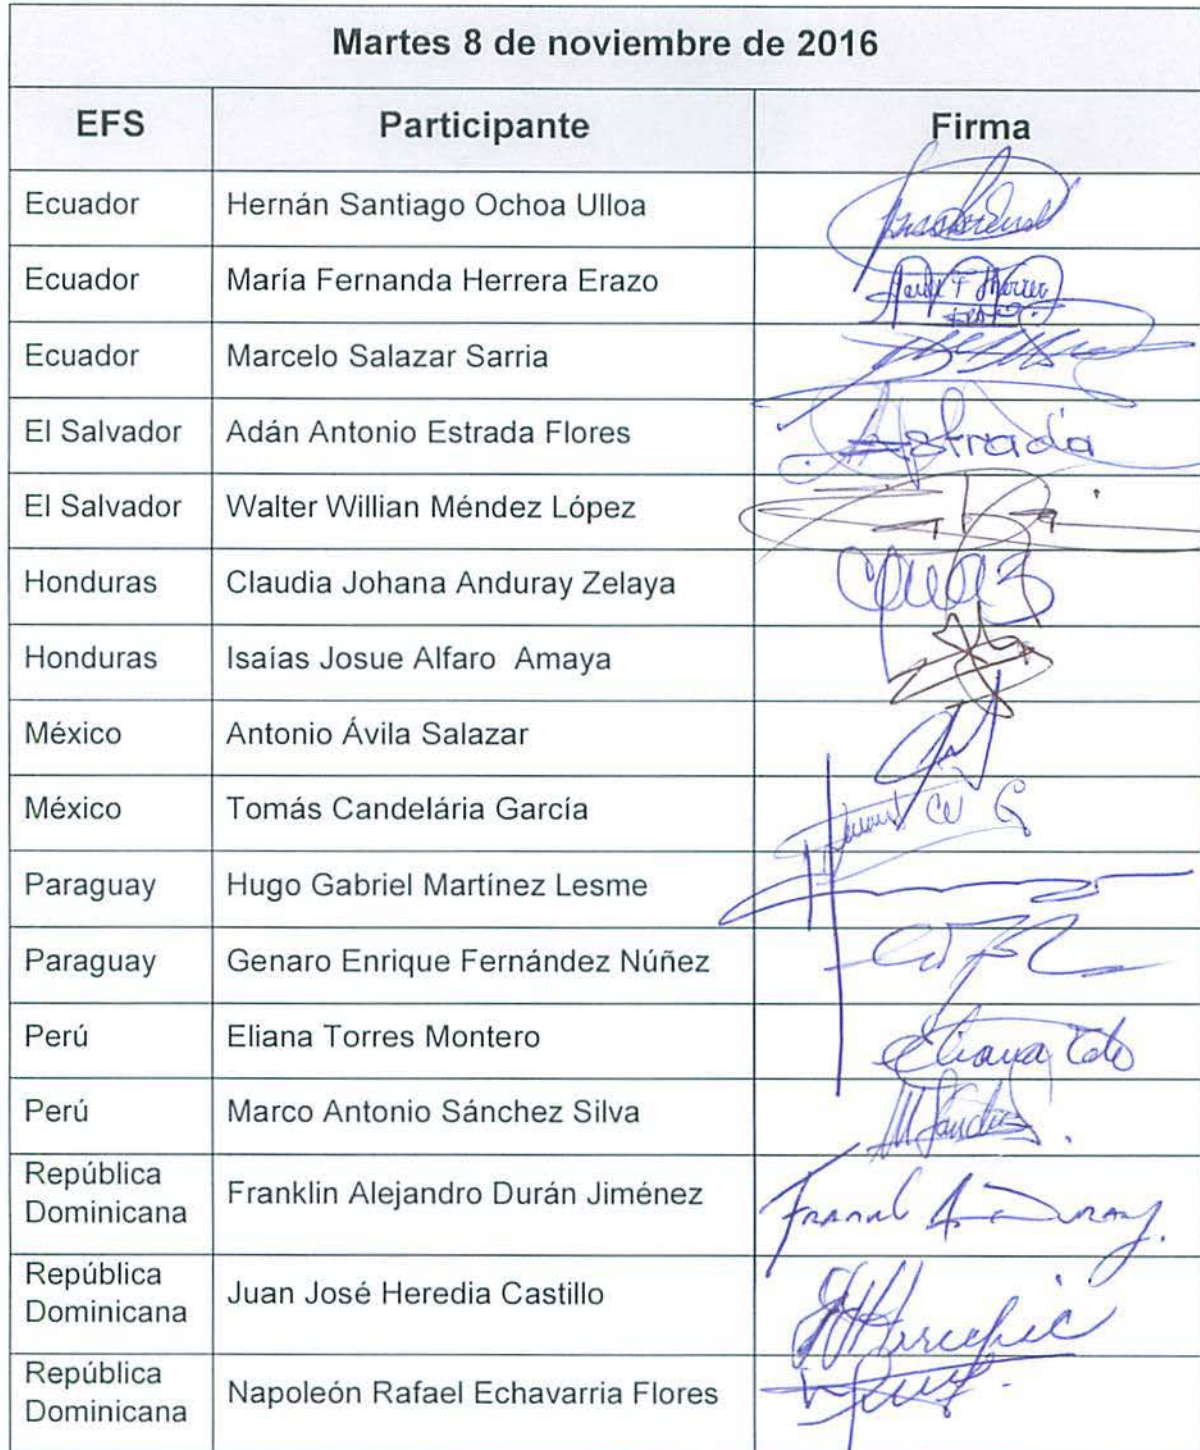 Martes 8 de noviembre de 2016
EFS Participante Firma
Ecuador Hernán Santiago Ochoa Ulloa
Ecuador María Fernanda Herrera Erazo
Ecuador Marcelo Salazar Sarria
El Salvador Adán Antonio Estrada Flores Astrada
El Salvador Walter Willian Méndez López
Honduras Claudia Johana Anduray Zelaya
Honduras Isaías Josue Alfaro Amaya
México Antonio Ávila Salazar
México Tomás Candelária García
Paraguay Hugo Gabriel Martínez Lesme
Paraguay Genaro Enrique Fernández Núñez
Perú Eliana Torres Montero Eliana
Perú Marco Antonio Sánchez Silva
República
Dominicana Franklin Alejandro Durán Jiménez
República
Dominicana Juan José Heredia Castillo
República
Dominicana Napoleón Rafael Echavarria Flores